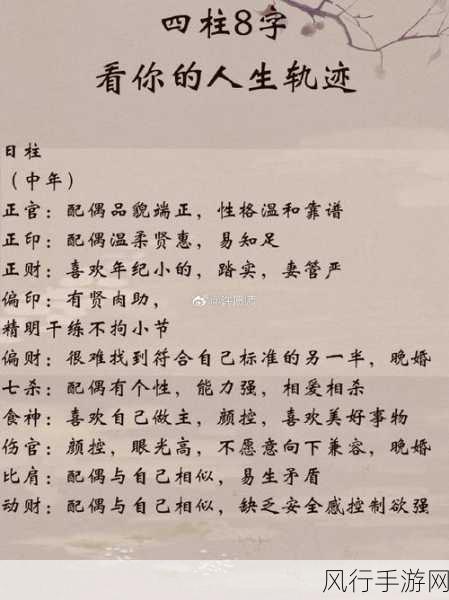 四柱8字
看你的人生轨迹
日柱
（中年）
正官：配偶品貌端正，性格温和靠谱
正印：配偶温柔贤惠，易知足
正财：喜欢年纪小的，踏实，妻管严
偏印：有贤内助，
精明干练不拘小节
偏财：很难找到符合自己标准的另一半，晚婚
七杀：配偶有个性，能力强，相爱相杀
食神：喜欢自己做主，颜控，喜欢美好事物
伤官：颜控，眼光高，不愿意向下兼容，晚婚
比肩：配偶与自己相似，易生矛盾
动财：配偶与自己相似，缺乏安全感控制欲强
风行手游网